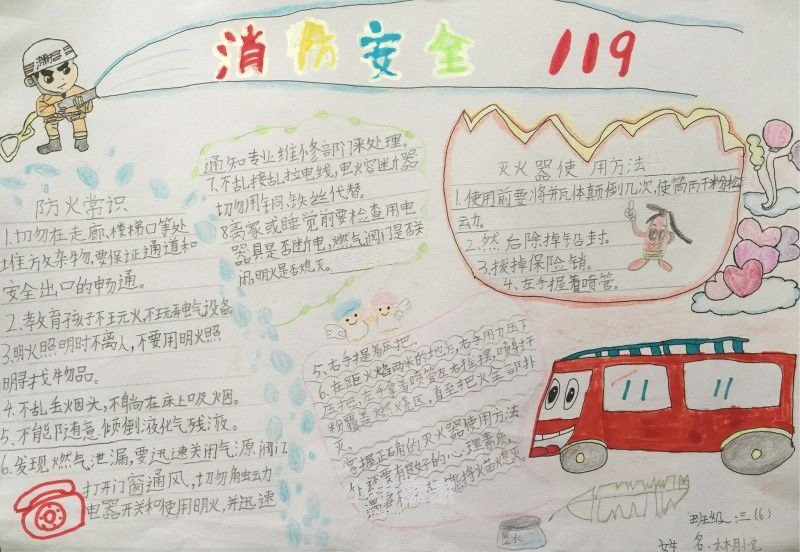 消防安全 119
防火常识
1.切勿在走廊、楼梯口等处
堆放杂物,要保证通道和
安全出口的畅通。
2.教育孩子不玩火,不玩弄电气设备
3.明火照明时不离人,不要用明火照
明寻找物品。
4.不乱丢烟头,不躺在床上吸烟。
5.不能随意倾倒液化气残液。
6.发现燃气泄漏,要迅速关闭气源阀门
打开门窗通风,切勿触动
电器开关和使用明火,并迅速
通知专业维修部门来处理。
7.不乱接乱拉电线,电火容断器
切勿用铜、铁丝代替。
8.离家或睡觉前要检查用电
器具是否断电,燃气阀门是否关
闭,明火是否熄灭。
灭火器使用方法
1.使用前要将并瓦体颠倒几次,使筒内干粉松
云力。
2.然后除掉铅封。
3.拔掉保险销。
4.左手握着喷管。
5.右手提着压把。
6.在距火焰两米的地方,右手用力压下
压把,左手拿着喷管左右摇摆,喷射干
粉覆盖燃烧区,直至把火全部扑
灭。
掌握正确的灭火器使用方法
外还要有良好的心理素质,
遇事
能将火苗熄灭
墨水
班级:三(6)
姓名:林